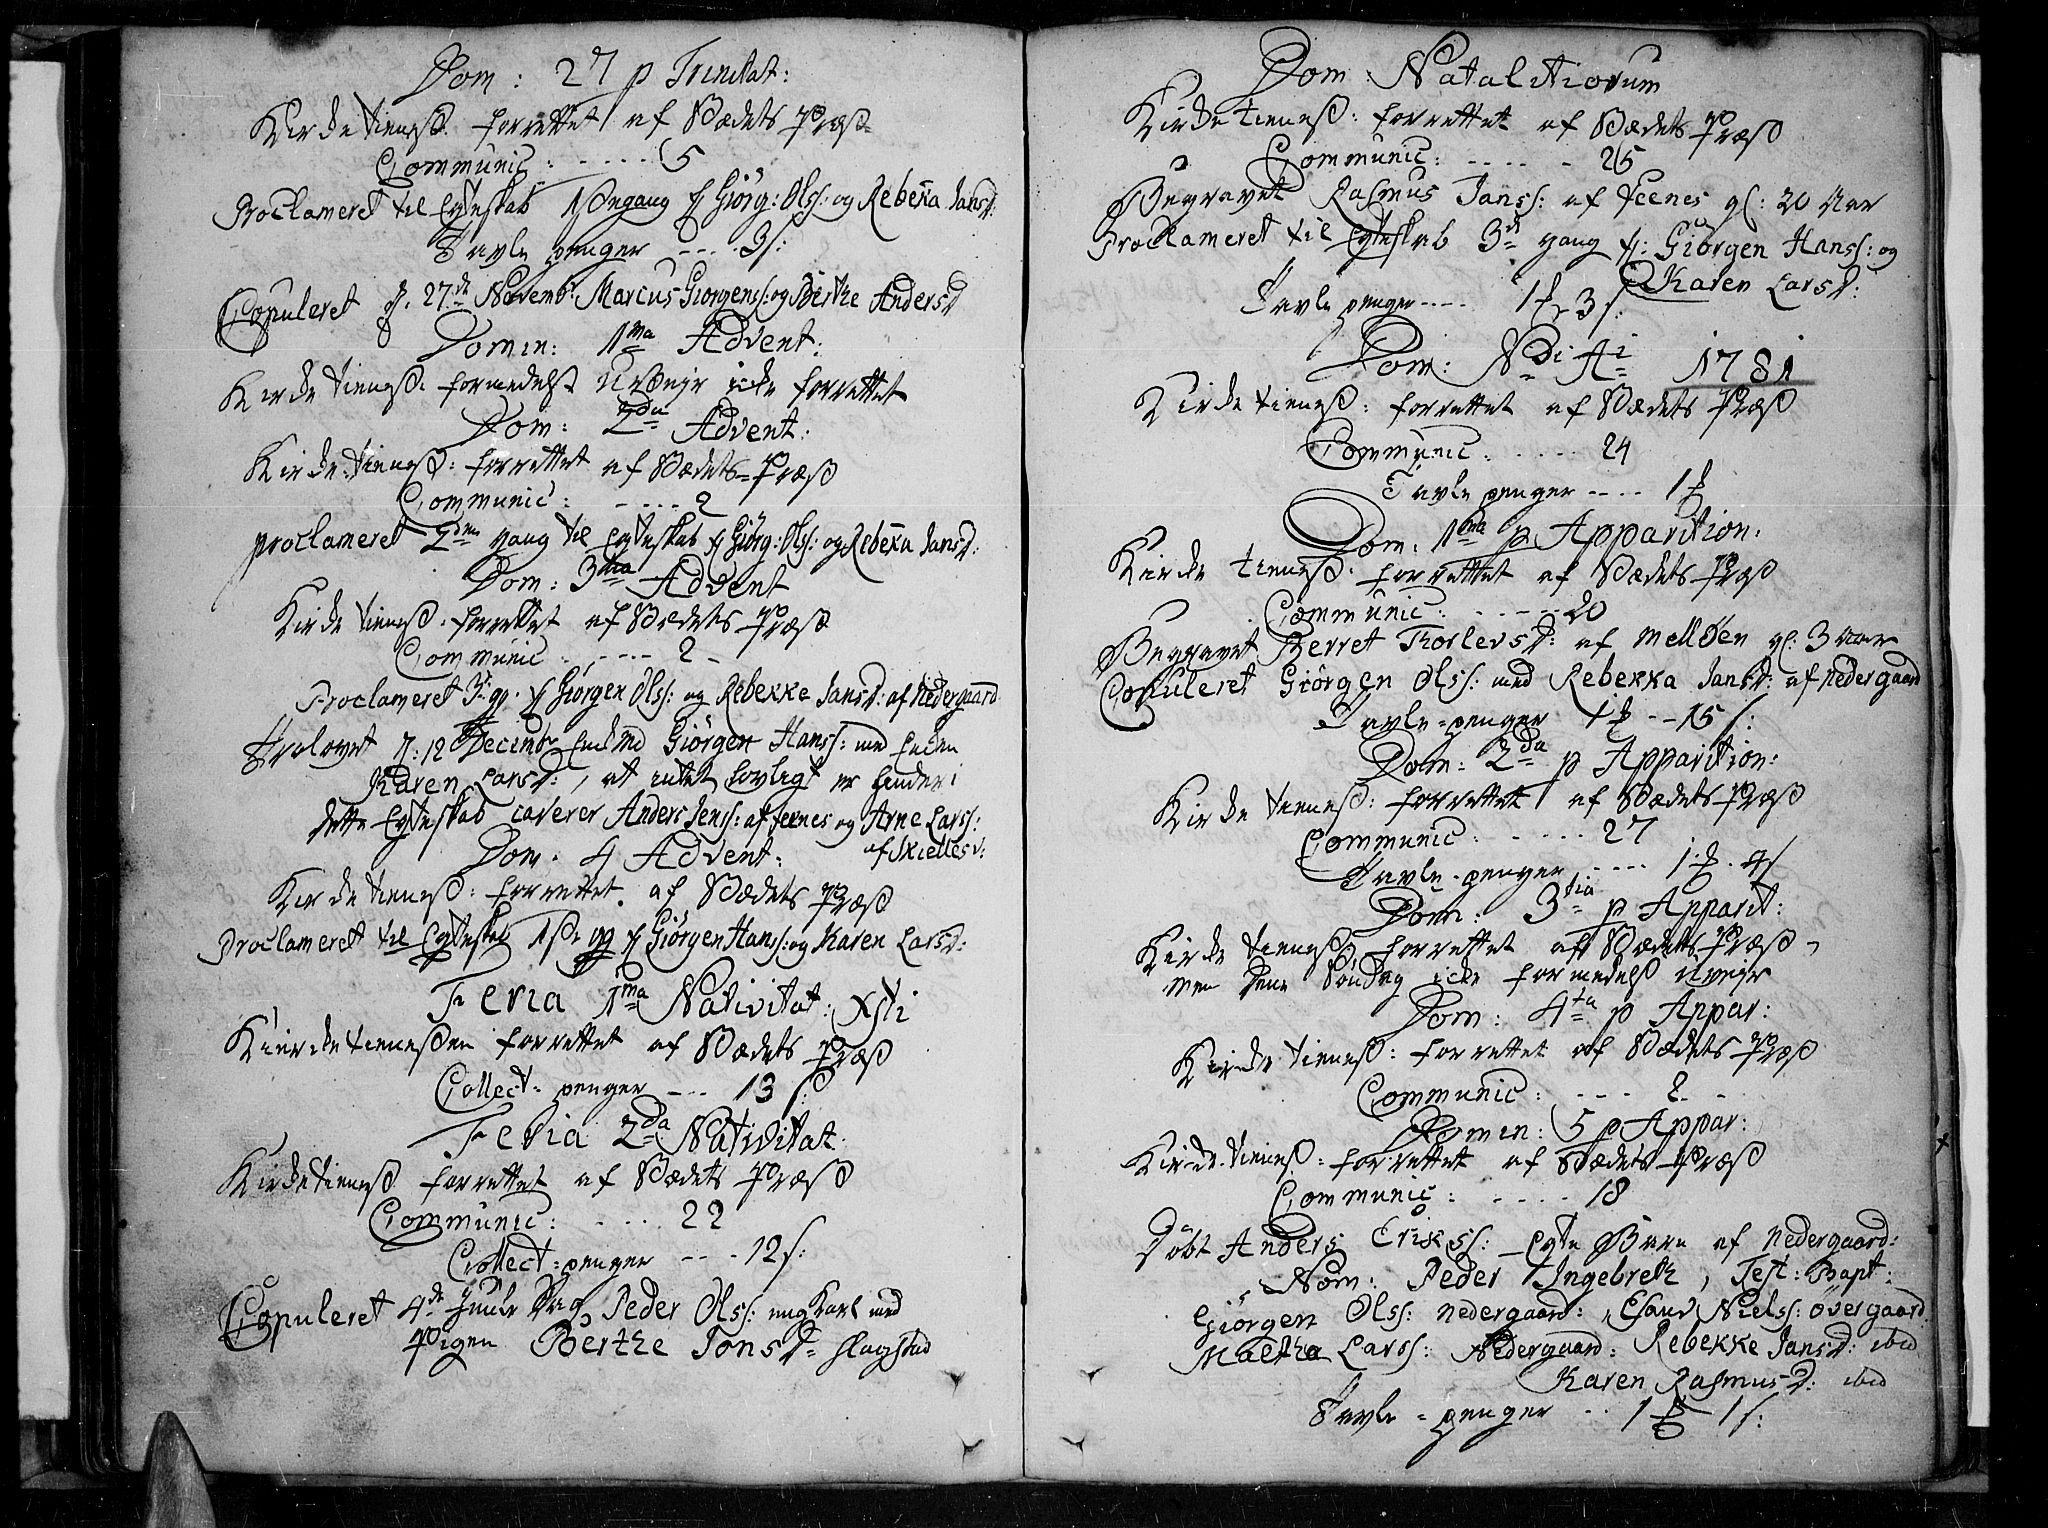 Dom: 27 p Trinitat:
Kirketienest: forrettet af Stædets Præst
Communic: - - - - - 5
Proclameret til Egteskab 1ste gang H Giörg: Olss: og Rebekka Jansd:
Tavle penger - - - 3 s:
Copuleret d. 27de Novemb: Marcus Giörgenss: og Birthe Andersd
Domin: 1ma Advent:
Kirketienest. formedelst Uveyr icke forrettet
Dom: 2da Advent:
Kirketienest: forrettet af Stædets Præst
Communic: - - - - - 2
proclameret 2den gang til Egteskab H Giörg: Olss: og Rebekka Jansd:
Dom: 3tia Advent
Kirketienest. forrettet af Stædets Præst
Communic - - - - - 2 -
Proclameret 3. gg. H Giörgen Olss: og Rebekke Jansd: af Nedergaard
Trolovet d: 12 Decembr Giörgen Hanss: med
Karen Larsd:, at intet lovligt er hinder i
dette Egteskab caverer Anders Jenss: af feenes og Arne Larss:
af Skiellesv:
Dom. 4 Advent:
Kirketienest: forrettet. af Stædets Præst
Proclameret til Egteskab 1ste gg H Giörgen Hanss: og Karen Larsd:
Feria 1ma Nativitat: Xsti
Kirketienesten forrettet af Stædets Præst
Collect-penger - - - 13 s:
Feria 2da Nativitat:
Kirketienest forrettet af Stædets Præst
Communic: - - - - 22
Collect-penger - - - 12 s:
Copuleret 4de Juule Dag Peder Olss: ung Karl med
Pigen Berthe Jonsd: Slagstad
Dom: Natalitiorum
Kirketienest: forrettet af Stædets Præst
Communic: - - - - - 25
Begravet Rasmus Janss: af feenes gl: 20 Aar
Proclameret til Egteskab 3de gang H: Giörgen Hanss: og
Karen Larsd:
Tavle penger - - - - 1 3 s:
Dom: Ndi Ai 1781
Kirketienest: forrettet af Stædets Præst
Communic: - - - - - 24
Tavle penger - - - - 1
Dom: 1ma p Apparition:
Kirketienest: forrettet af Stædets Præst
Communic: - - - - - 20
Begravet Berret Thorlevsd: af Melløen gl: 3 Aar
Copuleret Giörgen Olss: med Rebekka Jansd: af Nedergaard
Tavle-penger 1 - - 15 s:
Dom: 2da p Apparition:
Kirketienest: forrettet af Stædets Præst
Communic: - - - - - 27
Tavle-penger - - - - 1 4 s
Dom: 3tia p Apparit:
Kirketienest. forrettet af Stædets Præst,
men dene Søndag icke formedelst Uveyr
Dom: 4ta p Appar:
Kirketienest: forrettet af Stædets Præst
Communic: - - - - 2 -
Domin: 5 p Appar:
Kirketienest: forrettet af Stædets Præst
Communic: - - - - - 18
Døbt Anders Erikss: Egte Barn af Nedergaard:
Nom: Peder Ingebreth, Test: Bapt:
Giörgen Olss: Nedergaard: Esauv Nielss: Övergaard
Martha Larss: Nedergaard: Rebekke Jansd: ibid
Karen Rasmusd: ibid
Tavle-penger - - 1 1 s: